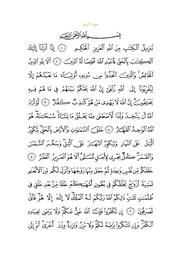 سورة الزمر
بسم الله الرحمن الرحيم
تنزيل الكتب من الله العزيز الحكيم ۝ إنا أنزلنا إليك
الكتب بالحق فاعبد الله مخلصا له الدين ۝ ألا لله الدين
الخالص والذين اتخذوا من دونه أولياء ما نعبدهم إلا
ليقربونا إلى الله زلفى إن الله يحكم بينهم في ما هم فيه
يختلفون إن الله لا يهدي من هو كذب كفار ۝ لو أراد
الله أن يتخذ ولدا لاصطفى مما يخلق ما يشاء سبحنه هو
الله الوحد القهار ۝ خلق السموت والأرض بالحق يكور
اليل على النهار ويكور النهار على اليل وسخر الشمس
والقمر كل يجري لأجل مسمى ألا هو العزيز الغفر ۝
خلقكم من نفس وحدة ثم جعل منها زوجها وأنزل لكم من الأنعم
ثمنية أزوج يخلقكم في بطون أمهتكم خلقا من بعد خلق في
ظلمت ثلث ذلكم الله ربكم له الملك لا إله إلا هو فأنى
تصرفون ۝ إن تكفروا فإن الله غني عنكم ولا يرضى لعباده
الكفر وإن تشكروا يرضه لكم ولا تزر وازرة وزر أخرى ثم إلى